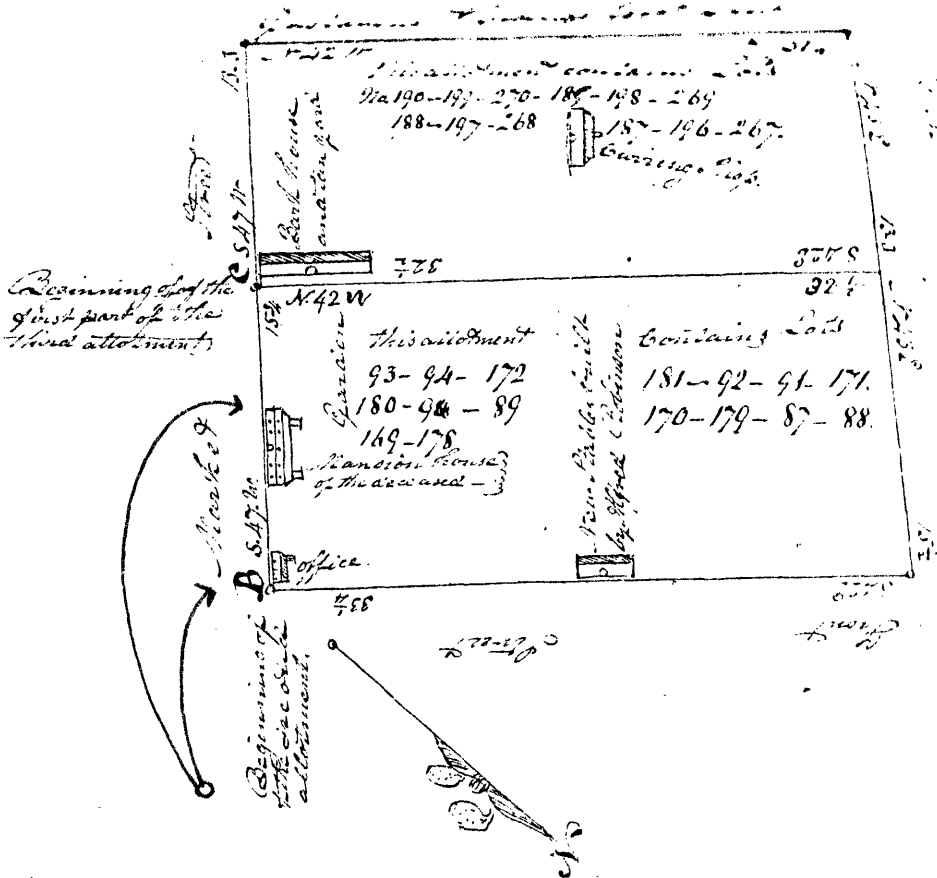 N 42 W
This allotment contains Lots
No 190-199-270-189-198-269
188-197-268
187-196-267.
Currying Shop.
Bark house
and tan yard
B.3
S 47 W
Street
C
Beginning of the
first part of the
third allotment
32½
S 42 E
N. 42 W
32½
15¼
Garden
this allotment
93-94-172
180-94-89
169-178
Mansion house
of the deceased
New Stable built
by Alfred Robinson
Contains Lots
181-92-91-171.
170-179-87-88.
Market
S. 47 W
B
office.
33¼
S 42 E
Street
Front
Beginning of
the second
allotment.
N